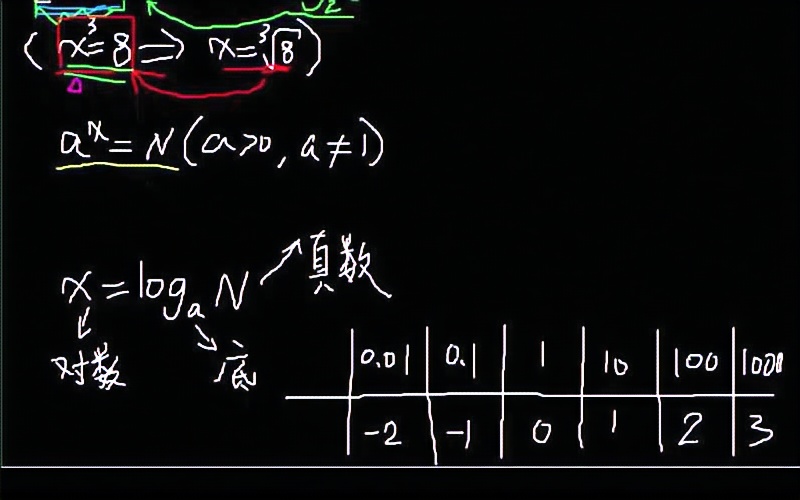 ( x³=8 ⇒ x=∛8 )
aˣ=N (a>0, a≠1)
x=logₐN
真数
对数
底
0.01 0.1 1 10 100 1000
-2 -1 0 1 2 3